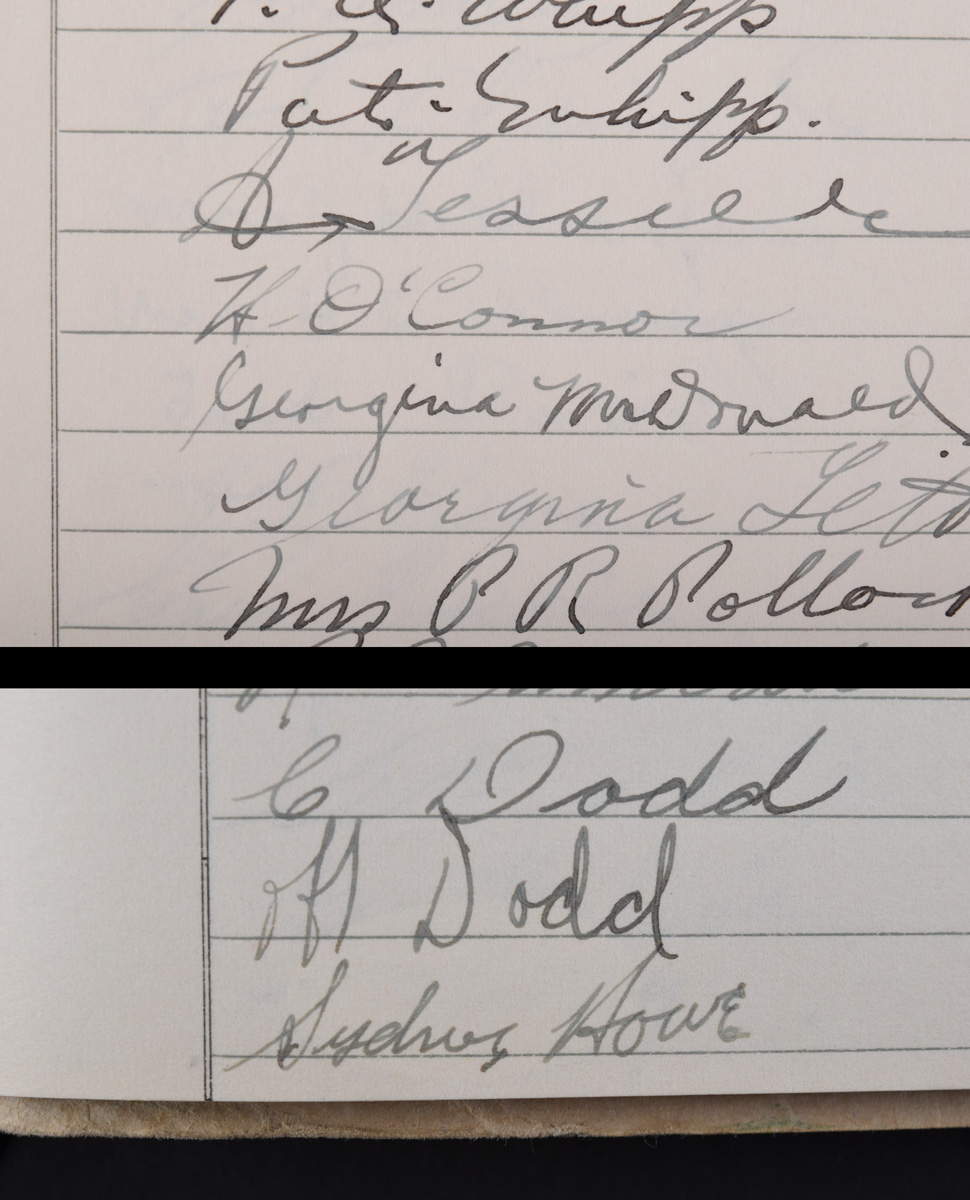 Whipp
Pat. Whipp.
H O'Connor
Georgina McDonald
Georgina
Mrs P R Pollock
C Dodd
H Dodd
Sydney Howe